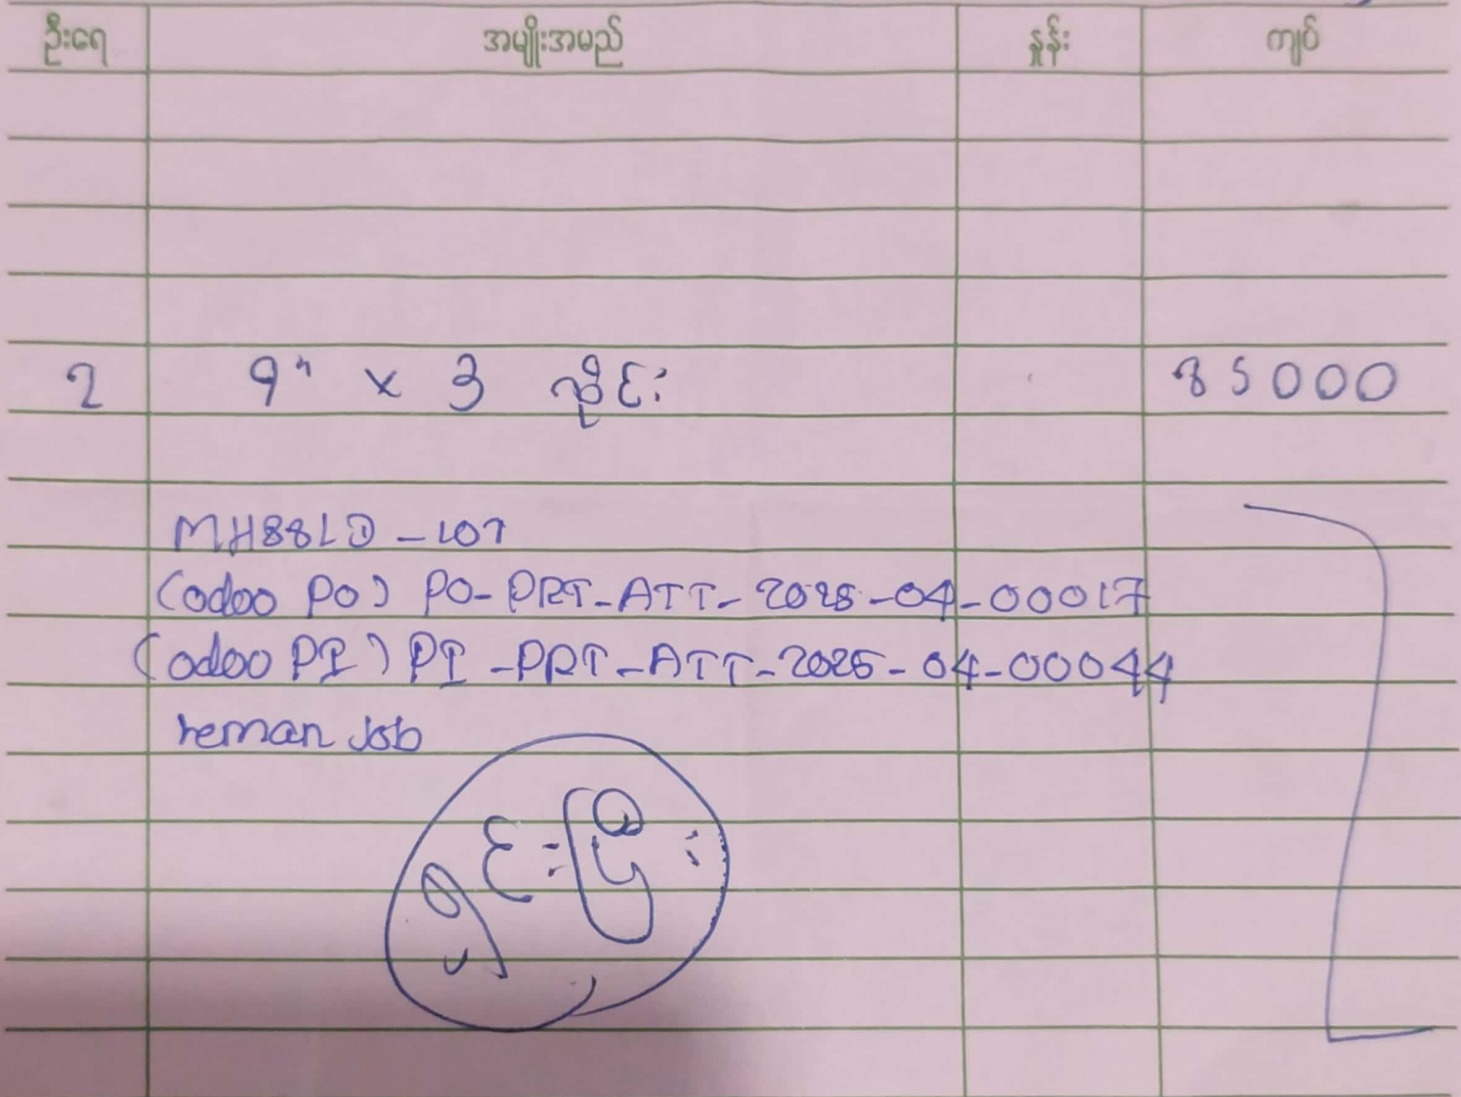 ဦးရေ အမျိုးအမည် နှုန်း ကျပ်
2 9" x 3 လိုင်း 85000
MH88LD - LOT
(odoo PO) PO-PRT-ATT-2025-04-00017
(odoo PI) PI-PRT-ATT-2025-04-00044
reman Job
ရှင်းပြီး